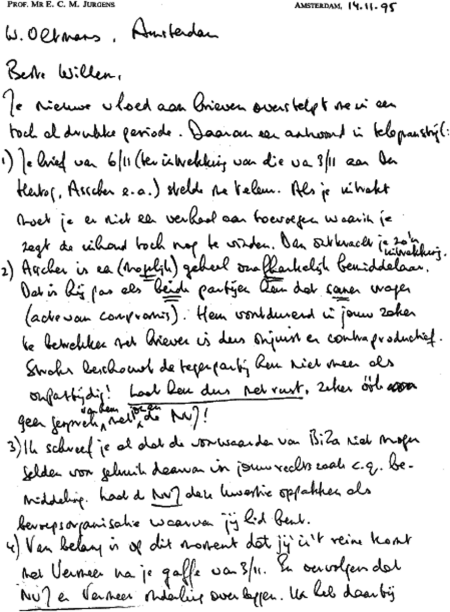 PROF. MR E. C. M. JURGENS AMSTERDAM, 14.11.95
W. Oltmans, Amsterdam
Beste Willem,
Je nieuwe vloed aan brieven overstelpt me in een
toch al drukke periode. Daarom een antwoord in telegramstijl:
1) Je brief van 6/11 (ter intrekking van die van 3/11 aan Den
Hertog, Asscher e.a.) stelde me teleur. Als je intrekt
moet je er niet een verhaal aan toevoegen waarin je
zegt de inhoud toch nog te vinden. Dan ontkracht je zo'n
intrekking.
2) Asscher is een (mogelijk) geheel onafhankelijk bemiddelaar.
Dat is hij pas als beide partijen hem dat samen vragen
(acte van compromis). Hem voortdurend in jouw zaken
te betrekken met brieven is dus onjuist en contraproductief.
Straks beschouwt de tegenpartij hem niet meer als
onpartijdig! Laat hem dus met rust, zeker óók
geen gesprek van hem met jou en de NVJ!
3) Ik schreef je al dat de voorwaarden van BiZa niet mogen
gelden voor gebruik daarvan in jouw rechtszaak c.q. be-
middeling. Laat de NVJ deze kwestie oppakken als
beroepsorganisatie waarvan jij lid bent.
4) Van belang is op dit moment dat jij in 't reine komt
met Vermeer na je gaffe van 3/11. En vervolgens dat
NVJ en Vermeer onderling overleggen. Ik heb daarbij